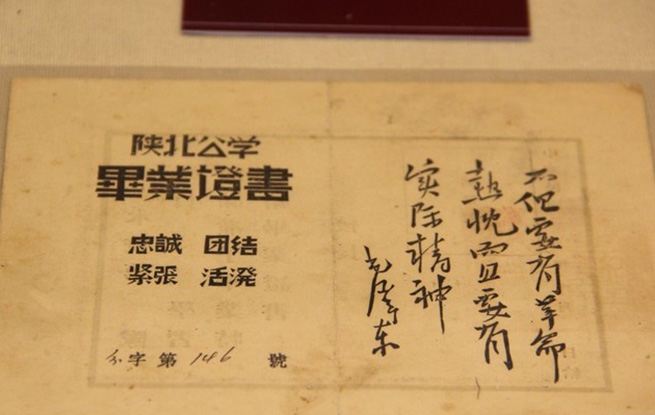 陕北公学
畢業證書
忠誠 团结
紧張 活潑
字第146號
不但要有革命
熱忱而且要有
实际精神
毛泽东